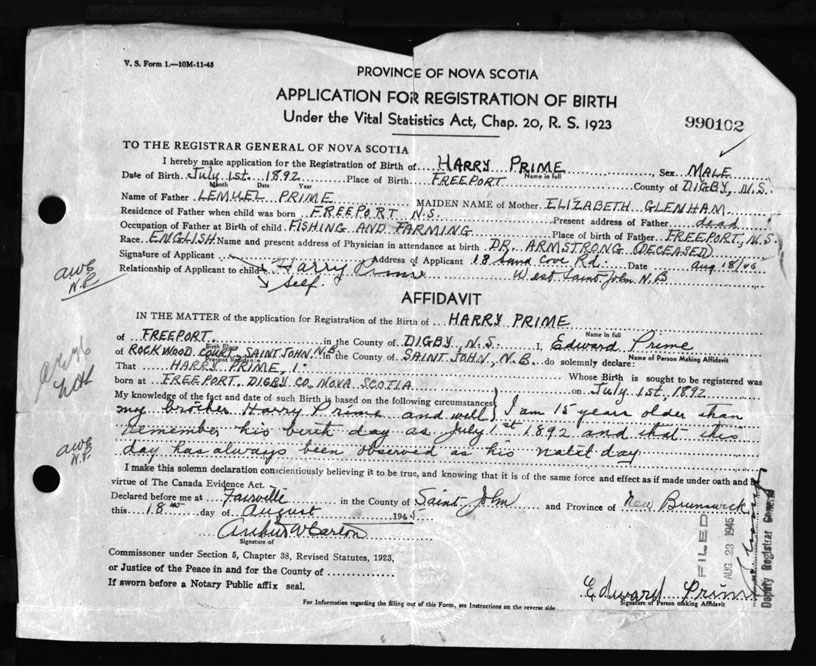 V. S. Form 1.—10M-11-43
PROVINCE OF NOVA SCOTIA
APPLICATION FOR REGISTRATION OF BIRTH
Under the Vital Statistics Act, Chap. 20, R. S. 1923
990102
TO THE REGISTRAR GENERAL OF NOVA SCOTIA
I hereby make application for the Registration of Birth of HARRY PRIME Sex MALE
Name in full
Date of Birth July 1st. 1892 Place of Birth FREEPORT County of DIGBY, N.S.
Month Date Year
Name of Father LEMUEL PRIME MAIDEN NAME of Mother ELIZABETH GLENHAM
Residence of Father when child was born FREEPORT N.S. Present address of Father dead
Occupation of Father at Birth of child FISHING AND FARMING Place of birth of Father FREEPORT, N.S.
Race ENGLISH Name and present address of Physician in attendance at birth DR. ARMSTRONG (DECEASED)
Signature of Applicant Harry Prime Address of Applicant 18 Sand Cove Rd. Date Aug 18/45
Relationship of Applicant to child Self West Saint John N.B
AFFIDAVIT
IN THE MATTER of the application for Registration of the Birth of HARRY PRIME
Name in full
of FREEPORT in the County of DIGBY, N.S. I, Edward Prime
Birth Place Name of Person Making Affidavit
of ROCKWOOD COURT, SAINT JOHN N.B. in the County of SAINT JOHN, N.B. do solemnly declare:
Present Residence
That HARRY PRIME, Whose Birth is sought to be registered was
born at FREEPORT, DIGBY CO, NOVA SCOTIA on JULY 1ST, 1892
My knowledge of the fact and date of such Birth is based on the following circumstances I am 15 years older than
my brother Harry Prime and well
remember his birth day as July 1st 1892 and that this
day has always been observed as his natal day
I make this solemn declaration conscientiously believing it to be true, and knowing that it is of the same force and effect as if made under oath and by
virtue of The Canada Evidence Act.
Declared before me at Fairville in the County of Saint John and Province of New Brunswick
this 18 day of August 194
Signature of
Commissioner under Section 5, Chapter 38, Revised Statutes, 1923,
or Justice of the Peace in and for the County of
If sworn before a Notary Public affix seal.
Edward Prime
Signature of Person Making Affidavit
For Information regarding the filling out of this Form, see Instructions on the reverse side
FILED
AUG 23 1945
Deputy Registrar General